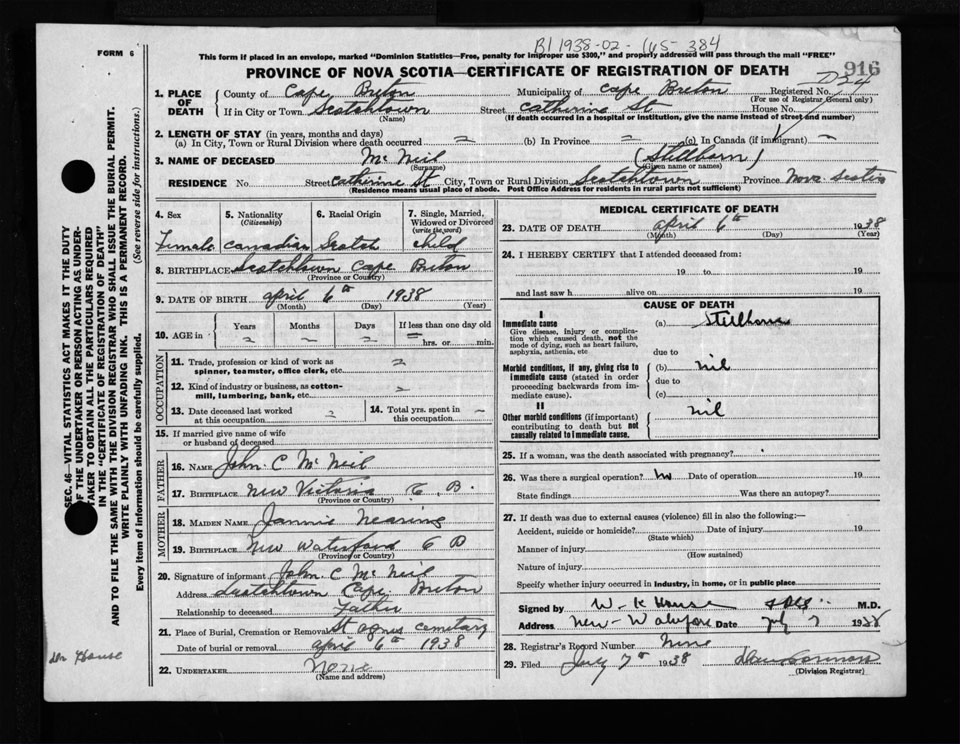 B1 1938-02-165-384
FORM 6
This form if placed in an envelope, marked "Dominion Statistics—Free, penalty for improper use $300," and properly addressed will pass through the mail "FREE"
916
PROVINCE OF NOVA SCOTIA—CERTIFICATE OF REGISTRATION OF DEATH
1. PLACE OF DEATH County of Cape Breton Municipality of Cape Breton Registered No.
(For use of Registrar General only)
If in City or Town Scotchtown Street Catherine St House No.
(Name) (If death occurred in a hospital or institution, give the name instead of street and number)
2. LENGTH OF STAY (in years, months and days)
(a) In City, Town or Rural Division where death occurred (b) In Province (c) In Canada (if immigrant)
3. NAME OF DECEASED Mc Neil (Stillborn)
(Surname) (Given name or names)
RESIDENCE No Street Catherine St City, Town or Rural Division Scotchtown Province Nova Scotia
(Residence means usual place of abode. Post Office Address for residents in rural parts not sufficient)
4. Sex 5. Nationality (Citizenship) 6. Racial Origin 7. Single, Married, Widowed or Divorced (write the word)
Female Canadian Scotch child
8. BIRTHPLACE Scotchtown Cape Breton
(Province or Country)
9. DATE OF BIRTH april 6th 1938
(Month) (Day) (Year)
10. AGE in Years Months Days If less than one day old
hrs. or min.
OCCUPATION
11. Trade, profession or kind of work as spinner, teamster, office clerk, etc.
12. Kind of industry or business, as cotton-mill, lumbering, bank, etc.
13. Date deceased last worked at this occupation
14. Total yrs. spent in this occupation
15. If married give name of wife or husband of deceased
FATHER
16. NAME John C Mc Neil
17. BIRTHPLACE New Victoria C. B.
(Province or Country)
MOTHER
18. MAIDEN NAME Jannie Nearing
19. BIRTHPLACE New Waterford C B
(Province or Country)
20. Signature of informant John C Mc Neil
Address Scotchtown Cape Breton
Relationship to deceased Father
21. Place of Burial, Cremation or Removal St agnes cemetary
Date of burial or removal april 6th 1938
22. UNDERTAKER None
(Name and address)
MEDICAL CERTIFICATE OF DEATH
23. DATE OF DEATH april 6th 1938
(Month) (Day) (Year)
24. I HEREBY CERTIFY that I attended deceased from:
19 to 19
and last saw h alive on 19
CAUSE OF DEATH
I
Immediate cause (a) Stillborn
Give disease, injury or complication which caused death, not the mode of dying, such as heart failure, asphyxia, asthenia, etc
due to
Morbid conditions, if any, giving rise to immediate cause (stated in order proceeding backwards from immediate cause).
(b) nil
due to
(c)
II
Other morbid conditions (if important) contributing to death but not causally related to immediate cause.
nil
25. If a woman, was the death associated with pregnancy?
26. Was there a surgical operation? No Date of operation 19
State findings Was there an autopsy?
27. If death was due to external causes (violence) fill in also the following:—
Accident, suicide or homicide? Date of injury 19
(State which)
Manner of injury
(How sustained)
Nature of injury
Specify whether injury occurred in industry, in home, or in public place
Signed by W. K House M.D.
Address New-Waterford Date July 7 1938
28. Registrar's Record Number Nine
29. Filed July 7th 1938
(Division Registrar)
SEC. 46—VITAL STATISTICS ACT MAKES IT THE DUTY
OF THE UNDERTAKER OR PERSON ACTING AS UNDER-
TAKER TO OBTAIN ALL THE PARTICULARS REQUIRED
IN THE "CERTIFICATE OF REGISTRATION OF DEATH"
AND TO FILE THE SAME WITH THE DIVISION REGISTRAR WHO SHALL ISSUE THE BURIAL PERMIT.
WRITE PLAINLY WITH UNFADING INK. THIS IS A PERMANENT RECORD.
Every item of information should be carefully supplied. (See reverse side for instructions.)
Dr House